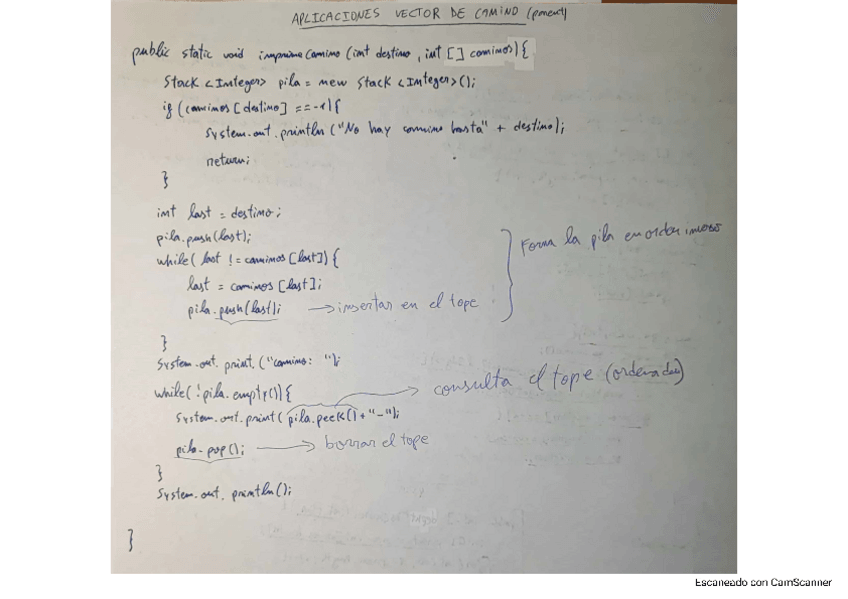 APLICACIONES VECTOR DE CAMINO (parent)
public static void imprimeCamino (int destino, int [] caminos) {
Stack <Integer> pila = new Stack <Integer>();
if (caminos [destino] == -1){
System.out.println ("No hay camino hasta" + destino);
return;
}
int last = destino;
pila.push(last);
while( last != caminos [last]) {
last = caminos [last];
pila.push(last);
→ insertar en el tope
Forma la pila en orden inverso
}
System.out.print. ("camino: ");
while( !pila.empty()) {
→ consulta el tope (ordenados)
System.out.print( pila.peek() + "-");
pila.pop();
→ borrar el tope
}
System.out.println();
}
Escaneado con CamScanner